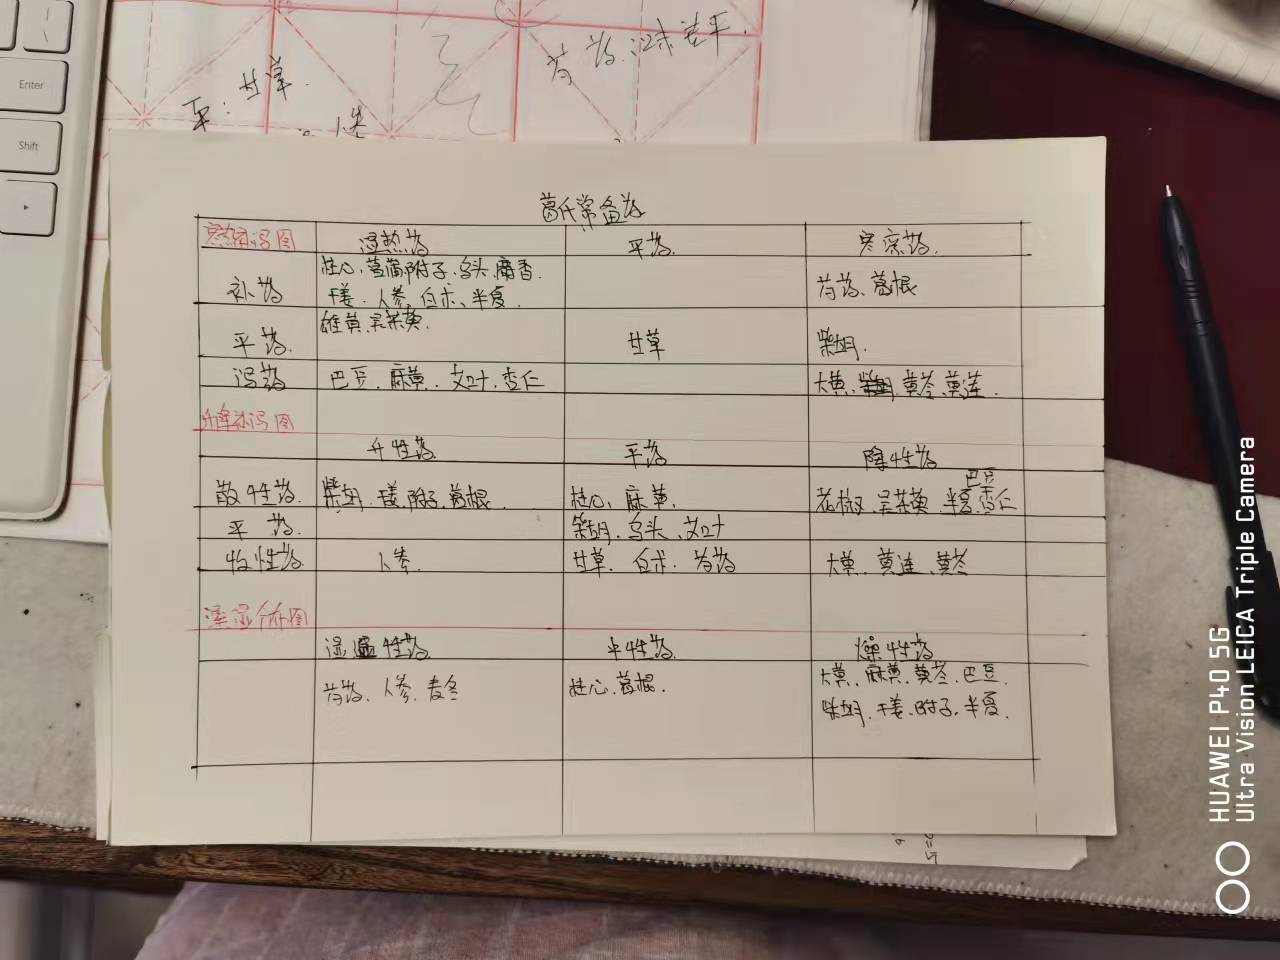 Enter
Shift
平：甘草.
芍药.味苦平.
葛氏常备药
寒热补泻图 温热药 平药. 寒凉药.
补药 桂心、菖蒲、附子.乌头.麝香.
干姜.人参.白术、半夏. 芍药、葛根
平药. 雄黄.吴茱萸. 甘草 柴胡.
泻药 巴豆、麻黄、艾叶、杏仁 大黄、黄芩、黄连.
升降补泻图
升性药 平药 降性药
散性药. 柴胡.干姜.附子.葛根 桂心、麻黄, 花椒.吴茱萸.半夏.杏仁
巴豆
平药. 柴胡.乌头、艾叶
收性药 人参. 甘草.白术.芍药 大黄.黄连、黄芩
燥湿分布图
湿性药. 平性药. 燥性药
芍药.人参.麦冬 桂心、葛根. 大黄、麻黄、黄芩、巴豆.
柴胡、干姜、附子.半夏.
HUAWEI P40 5G
Ultra Vision LEICA Triple Camera